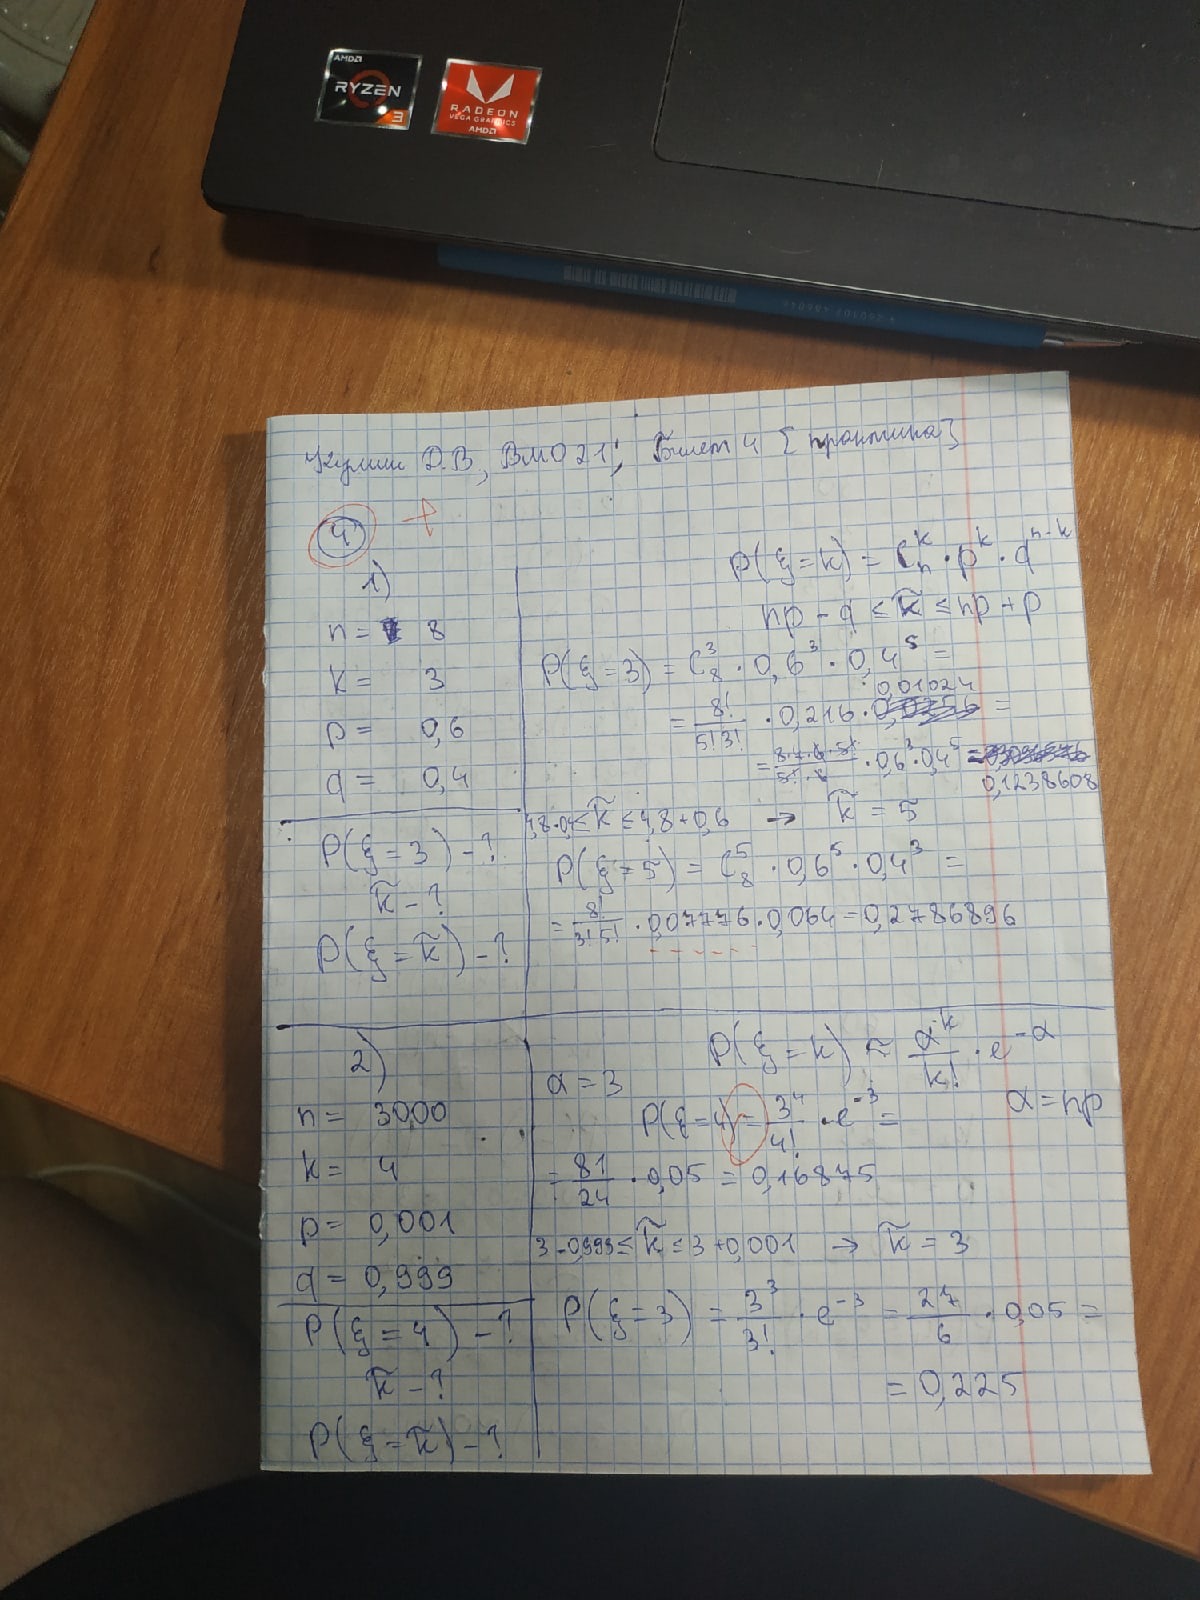 AMD
RYZEN
3
RADEON
VEGA GRAPHICS
AMD
Д.В, ВМО21, Билет 4 [практика]
4 +
1)
n = 8
k = 3
p = 0,6
q = 0,4
P(ξ=3) - ?
k̃ - ?
P(ξ=k̃) - ?
P(ξ=k) = C_n^k · p^k · q^{n-k}
np - q ≤ k̃ ≤ np + p
P(ξ=3) = C_8^3 · 0,6^3 · 0,4^5 =
= 8!/5!3! · 0,216 · 0,01024 =
= 8·7·6·5!/5!·6 · 0,6^3 · 0,4^5 = 0,1238608
4,8-0,4 ≤ k̃ ≤ 4,8+0,6 → k̃ = 5
P(ξ=5) = C_8^5 · 0,6^5 · 0,4^3 =
= 8!/3!5! · 0,07776 · 0,064 = 0,2786896
2)
n = 3000
k = 4
p = 0,001
q = 0,999
P(ξ=4) - ?
k̃ - ?
P(ξ=k̃) - ?
P(ξ=k) ≈ α^k/k! · e^{-α}
α = 3
α = np
P(ξ=4) = 3^4/4! · e^{-3} =
= 81/24 · 0,05 = 0,16875
3-0,999 ≤ k̃ ≤ 3+0,001 → k̃ = 3
P(ξ=3) = 3^3/3! · e^{-3} = 27/6 · 0,05 =
= 0,225